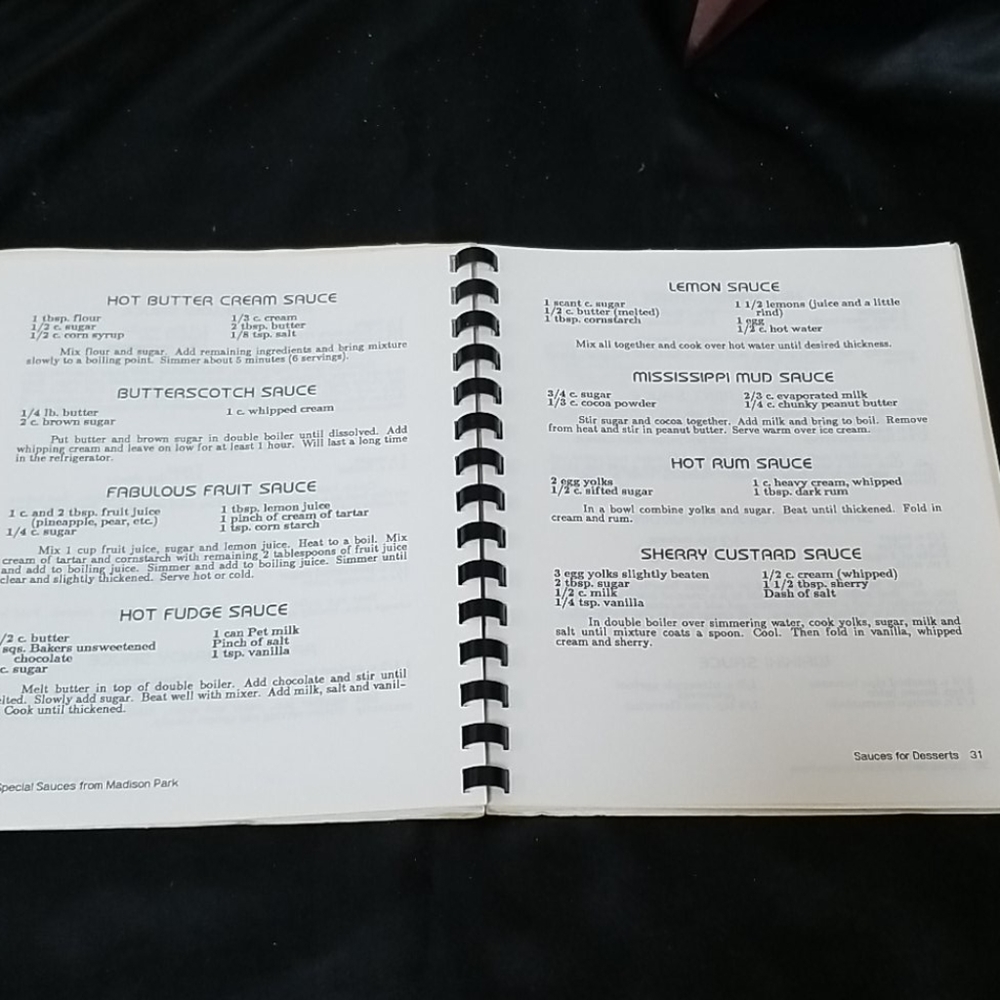 HOT BUTTER CREAM SAUCE
1 tbsp. flour
1/2 c. sugar
1/2 c. corn syrup
1/3 c. cream
2 tbsp. butter
1/8 tsp. salt
Mix flour and sugar. Add remaining ingredients and bring mixture
slowly to a boiling point. Simmer about 5 minutes (6 servings).
BUTTERSCOTCH SAUCE
1/4 lb. butter
2 c. brown sugar
1 c. whipped cream
Put butter and brown sugar in double boiler until dissolved. Add
whipping cream and leave on low for at least 1 hour. Will last a long time
in the refrigerator.
FABULOUS FRUIT SAUCE
1 c. and 2 tbsp. fruit juice
(pineapple, pear, etc.)
1/4 c. sugar
1 tbsp. lemon juice
1 pinch of cream of tartar
1 tsp. corn starch
Mix 1 cup fruit juice, sugar and lemon juice. Heat to a boil. Mix
cream of tartar and cornstarch with remaining 2 tablespoons of fruit juice
and add to boiling juice. Simmer and add to boiling juice. Simmer until
clear and slightly thickened. Serve hot or cold.
HOT FUDGE SAUCE
/2 c. butter
sqs. Bakers unsweetened
chocolate
c. sugar
1 can Pet milk
Pinch of salt
1 tsp. vanilla
Melt butter in top of double boiler. Add chocolate and stir until
lted. Slowly add sugar. Beat well with mixer. Add milk, salt and vanil-
Cook until thickened.
Special Sauces from Madison Park
LEMON SAUCE
1 scant c. sugar
1/2 c. butter (melted)
1 tbsp. cornstarch
1 1/2 lemons (juice and a little
rind)
1 egg
1/2 c. hot water
Mix all together and cook over hot water until desired thickness.
MISSISSIPPI MUD SAUCE
3/4 c. sugar
1/3 c. cocoa powder
2/3 c. evaporated milk
1/4 c. chunky peanut butter
Stir sugar and cocoa together. Add milk and bring to boil. Remove
from heat and stir in peanut butter. Serve warm over ice cream.
HOT RUM SAUCE
2 egg yolks
1/2 c. sifted sugar
1 c. heavy cream, whipped
1 tbsp. dark rum
In a bowl combine yolks and sugar. Beat until thickened. Fold in
cream and rum.
SHERRY CUSTARD SAUCE
3 egg yolks slightly beaten
2 tbsp. sugar
1/2 c. milk
1/4 tsp. vanilla
1/2 c. cream (whipped)
1 1/2 tbsp. sherry
Dash of salt
In double boiler over simmering water, cook yolks, sugar, milk and
salt until mixture coats a spoon. Cool. Then fold in vanilla, whipped
cream and sherry.
Sauces for Desserts 31